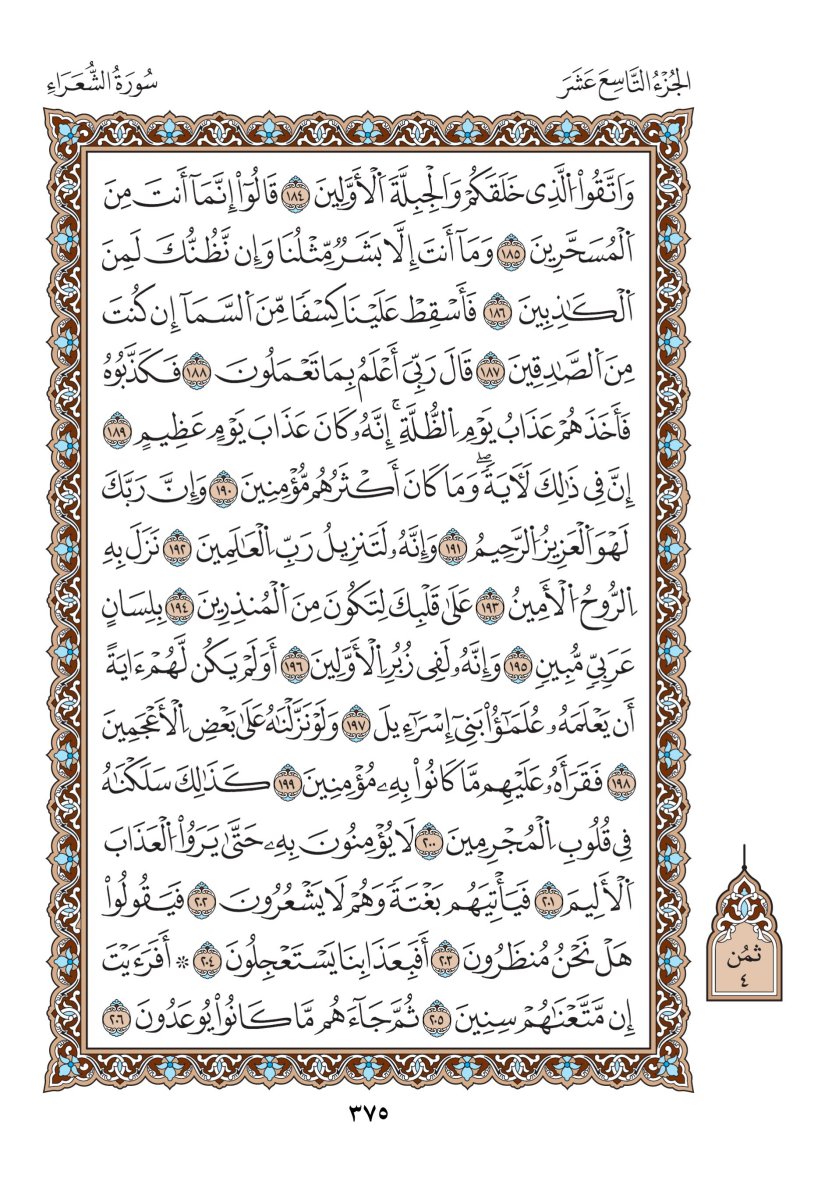 الجُزْءُ التَّاسِعَ عَشَرَ
سُورَةُ الشُّعَرَاءِ
وَاتَّقُواْ اَلَّذِى خَلَقَكُمْ وَالْجِبِلَّةَ اَلْأَوَّلِينَ ١٨٤ قَالُوٓاْ إِنَّمَآ أَنتَ مِنَ
اَلْمُسَحَّرِينَ ١٨٥ وَمَآ أَنتَ إِلَّا بَشَرٌ مِّثْلُنَا وَإِن نَّظُنُّكَ لَمِنَ
اَلْكَٰذِبِينَ ١٨٦ فَأَسْقِطْ عَلَيْنَا كِسْفًا مِّنَ اَلسَّمَآ إِن كُنتَ
مِنَ اَلصَّٰدِقِينَ ١٨٧ قَالَ رَبِّيَ أَعْلَمُ بِمَا تَعْمَلُونَ ١٨٨ فَكَذَّبُوهُ
فَأَخَذَهُمْ عَذَابُ يَوْمِ اِلظُّلَّةِ ۚ إِنَّهُۥ كَانَ عَذَابَ يَوْمٍ عَظِيمٍ ١٨٩
إِنَّ فِى ذَٰلِكَ لَأٓيَةً ۖ وَمَا كَانَ أَكْثَرُهُم مُّؤْمِنِينَ ١٩٠ وَإِنَّ رَبَّكَ
لَهْوَ اَلْعَزِيزُ اُلرَّحِيمُ ١٩١ وَإِنَّهُۥ لَتَنزِيلُ رَبِّ اِلْعَٰلَمِينَ ١٩٢ نَزَلَ بِهِ
اِلرُّوحُ اُلْأَمِينُ ١٩٣ عَلَىٰ قَلْبِكَ لِتَكُونَ مِنَ اَلْمُنذِرِينَ ١٩٤ بِلِسَانٍ
عَرَبِيٍّ مُّبِينٍ ١٩٥ وَإِنَّهُۥ لَفِى زُبُرِ اِلْأَوَّلِينَ ١٩٦ أَوَلَمْ يَكُن لَّهُمْ ءَايَةً
أَن يَعْلَمَهُۥ عُلَمَٰٓؤُاْ بَنِىٓ إِسْرَٰٓءِيلَ ١٩٧ وَلَوْ نَزَّلْنَٰهُ عَلَىٰ بَعْضِ اِلْأَعْجَمِينَ
١٩٨ فَقَرَأَهُۥ عَلَيْهِم مَّا كَانُواْ بِهِۦ مُؤْمِنِينَ ١٩٩ كَذَٰلِكَ سَلَكْنَٰهُ
فِى قُلُوبِ اِلْمُجْرِمِينَ ٢٠٠ لَا يُؤْمِنُونَ بِهِۦ حَتَّىٰ يَرَوُاْ اُلْعَذَابَ
اَلْأَلِيمَ ٢٠١ فَيَأْتِيَهُم بَغْتَةً وَهُمْ لَا يَشْعُرُونَ ٢٠٢ فَيَقُولُواْ
هَلْ نَحْنُ مُنظَرُونَ ٢٠٣ أَفَبِعَذَابِنَا يَسْتَعْجِلُونَ ٢٠٤ * أَفَرَءَيْتَ
إِن مَّتَّعْنَٰهُمْ سِنِينَ ٢٠٥ ثُمَّ جَآءَهُم مَّا كَانُواْ يُوعَدُونَ ٢٠٦
ثُمُن
٤
٣٧٥